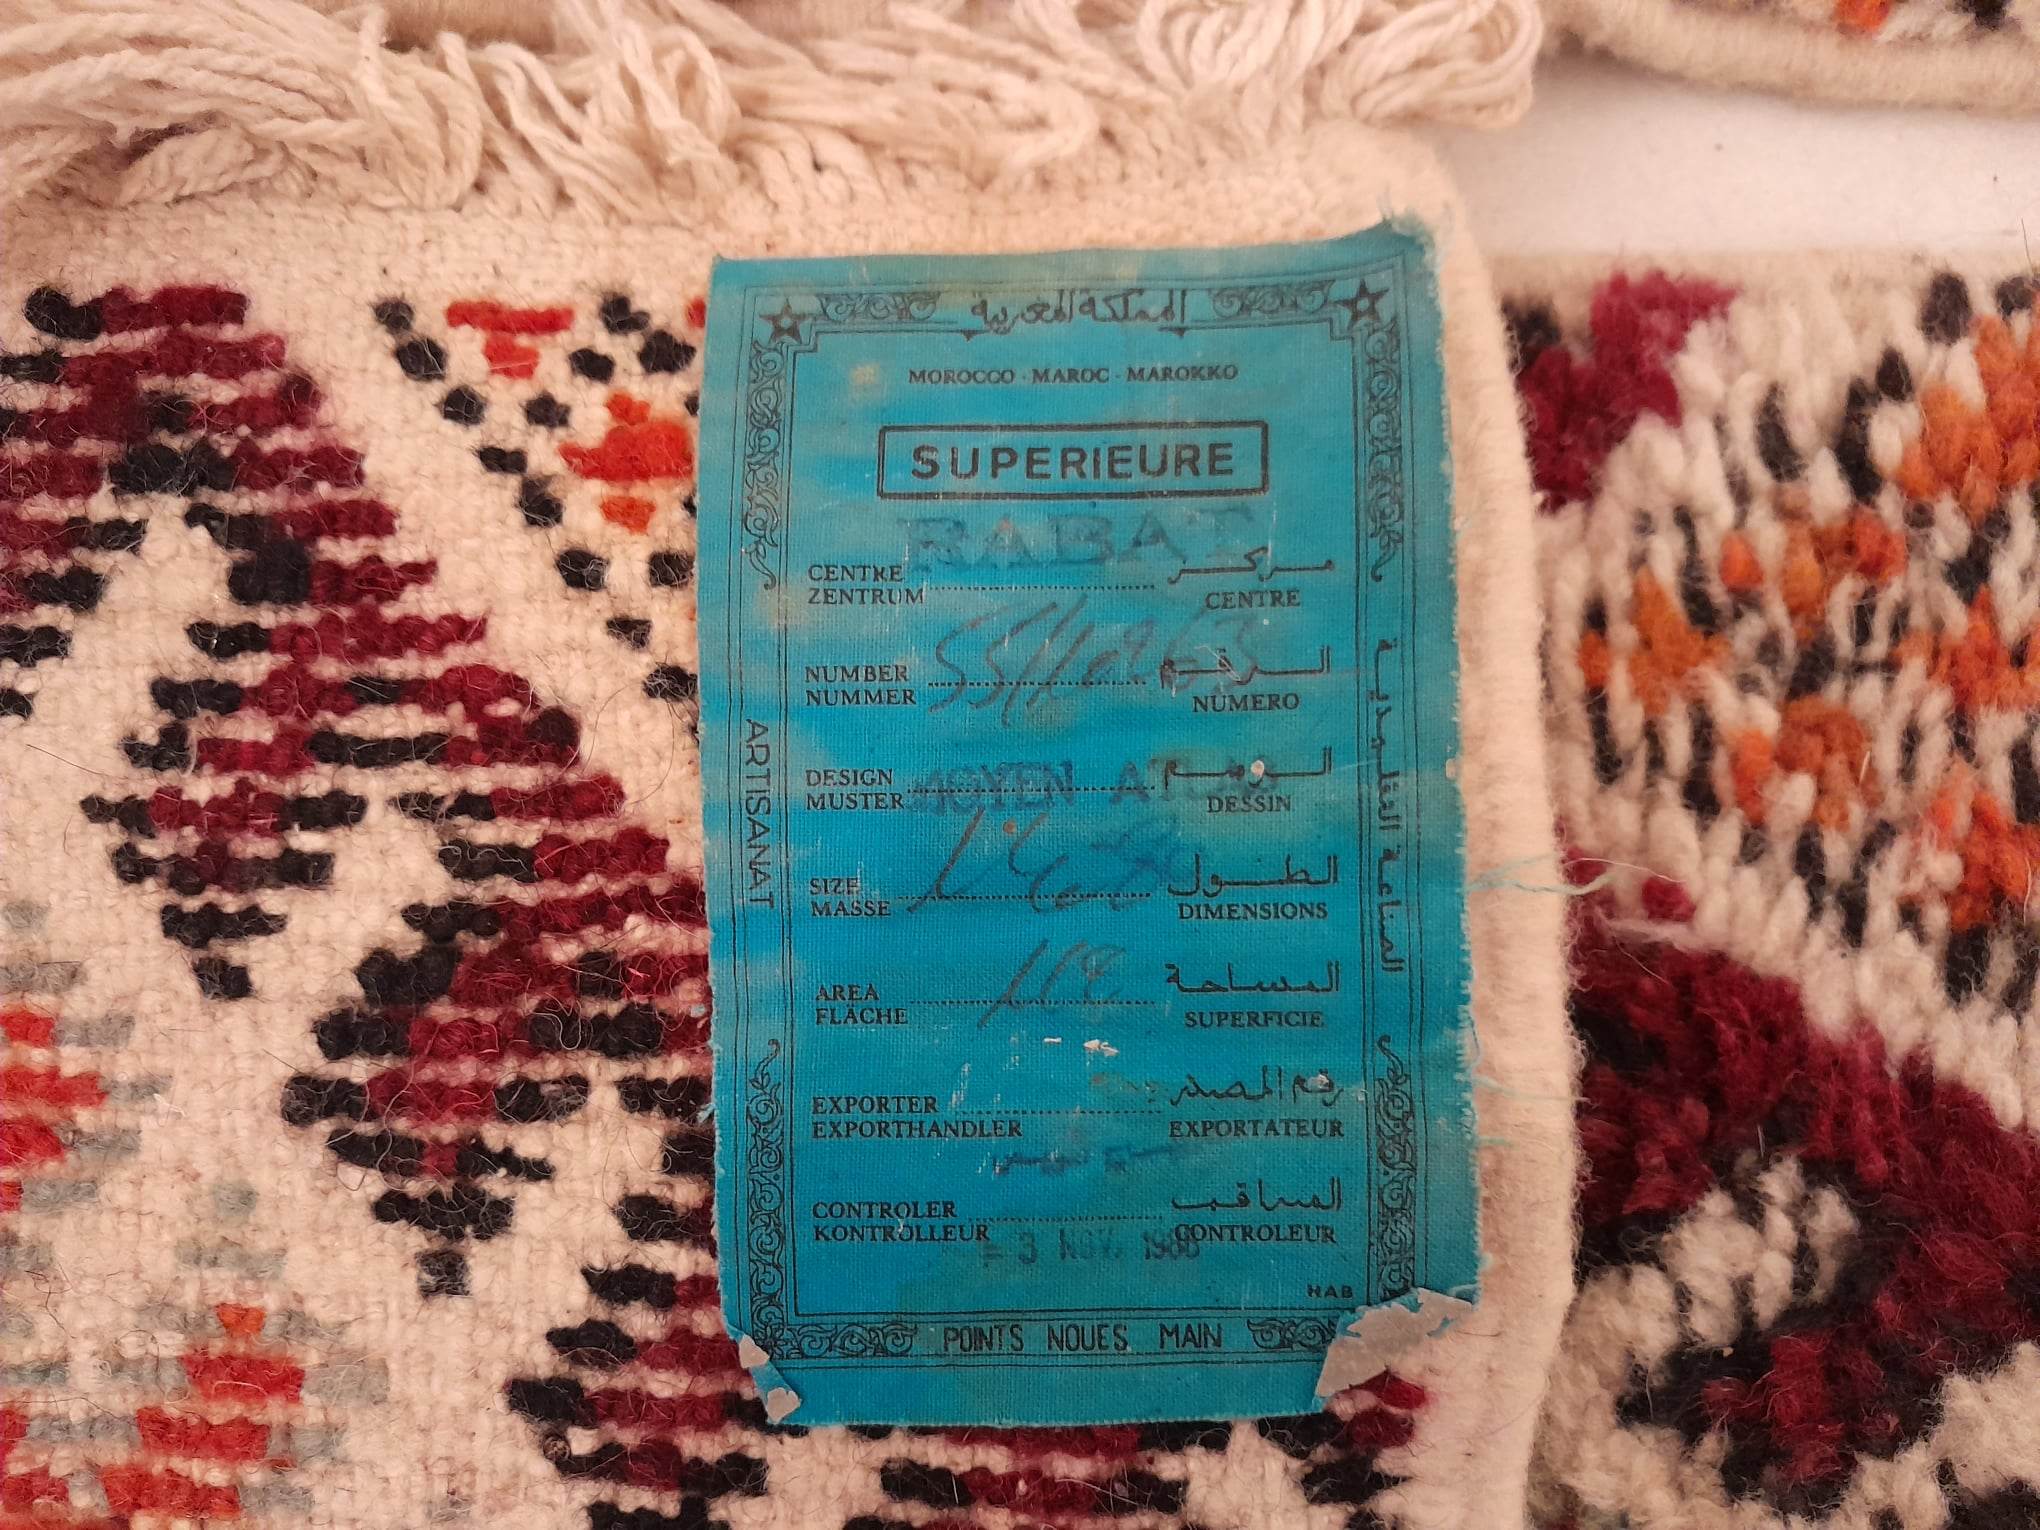 المملكة المغربية
MOROCCO · MAROC · MAROKKO
SUPERIEURE
RABAT
CENTRE مركز
ZENTRUM CENTRE
NUMBER الرقم
NUMMER NUMERO
DESIGN MOYEN ATLAS الرسم
MUSTER DESSIN
SIZE الطول
MASSE DIMENSIONS
AREA المساحة
FLÄCHE SUPERFICIE
EXPORTER رقم المصدر
EXPORTHANDLER EXPORTATEUR
CONTROLER المراقب
KONTROLLEUR CONTROLEUR
3 NOV. 1986
HAB
POINTS NOUES MAIN
ARTISANAT
الصناعة التقليدية